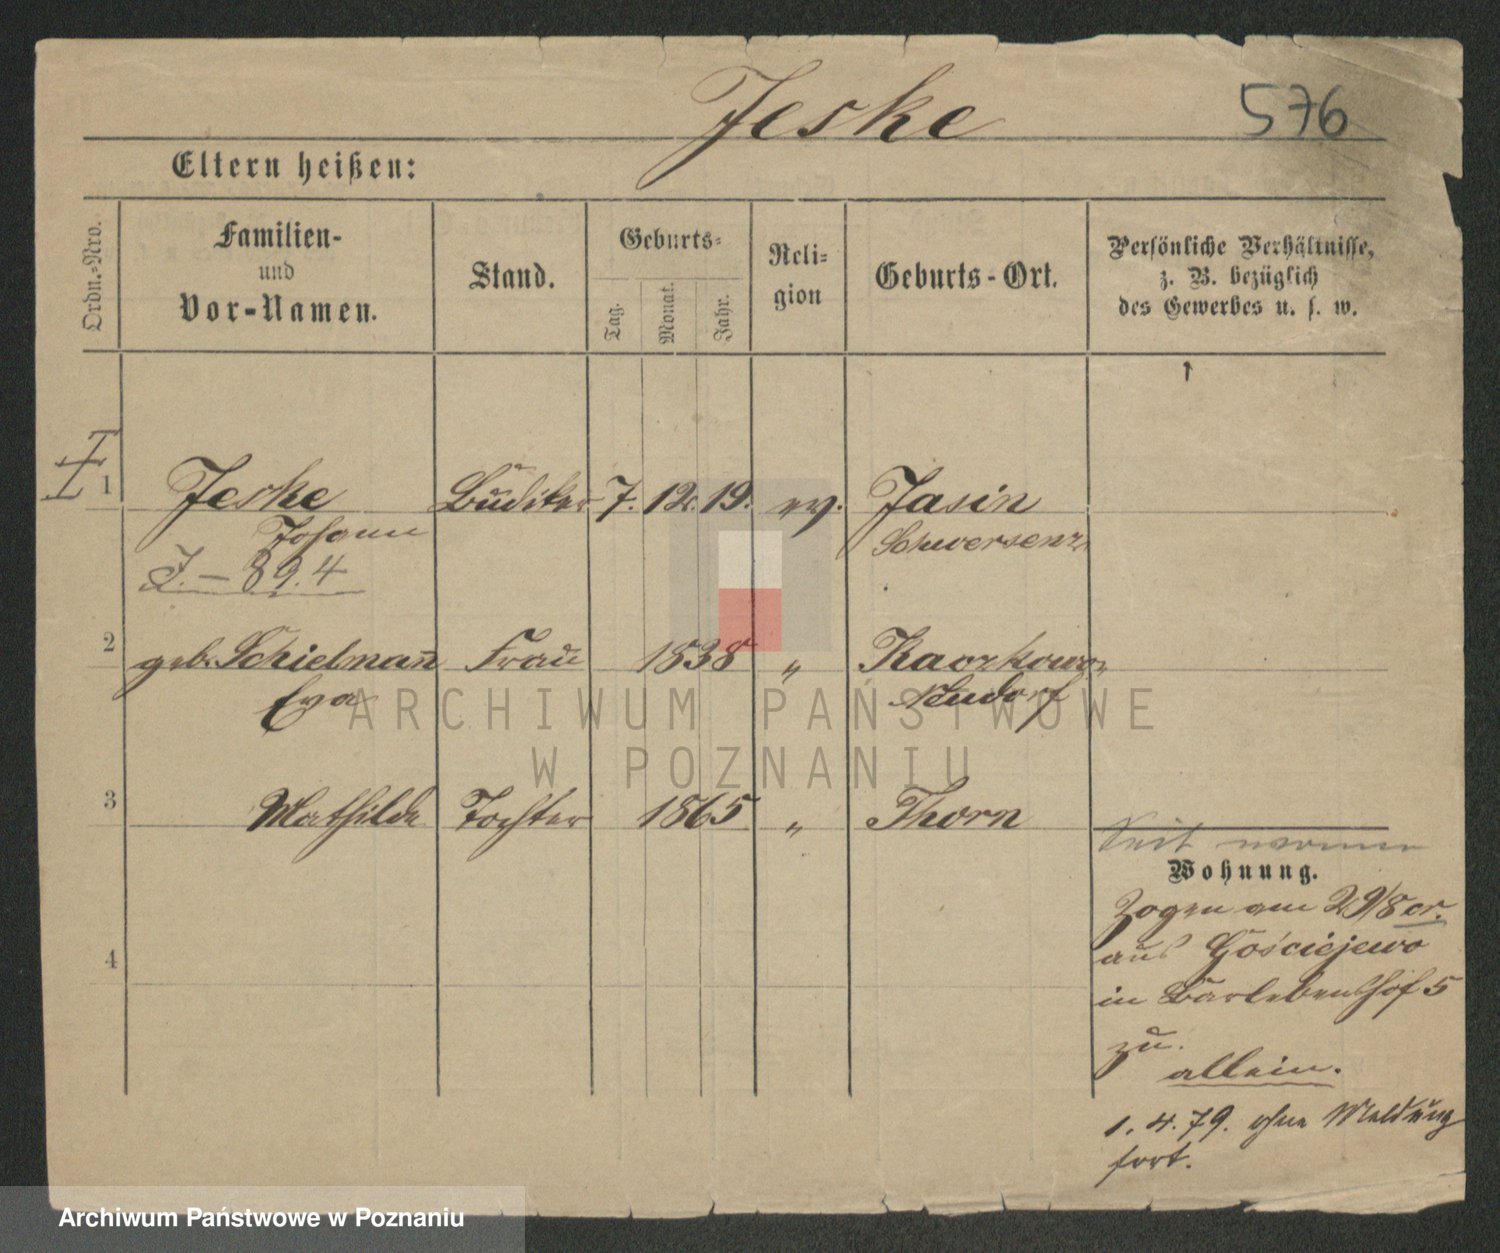 Jeske
576
Eltern heißen:
Ordn.-Nro.
Familien-
und
Vor-Namen.
Stand.
Geburts-
Tag.
Monat.
Jahr.
Reli-
gion
Geburts-Ort.
Persönliche Verhältnisse,
z. B. bezüglich
des Gewerbes u. s. w.
1
Jeske Büdiker 7. 12. 19. ev. Jasin
Johann Schwersenz
J. – 89.4
2
geb. Schielmann Frau 1838 „ Kaczkowo
Eva Neudorf
ARCHIWUM PAŃSTWOWE
W POZNANIU
3
Mathilde Tochter 1865 „ Thorn
Seit
Wohnung.
Zogen am 29/8 cr.
aus Gościejewo
in Bartlebenshof 5
zu.
allein.
4
1. 4. 79. ohne Meldung
fort.
Archiwum Państwowe w Poznaniu